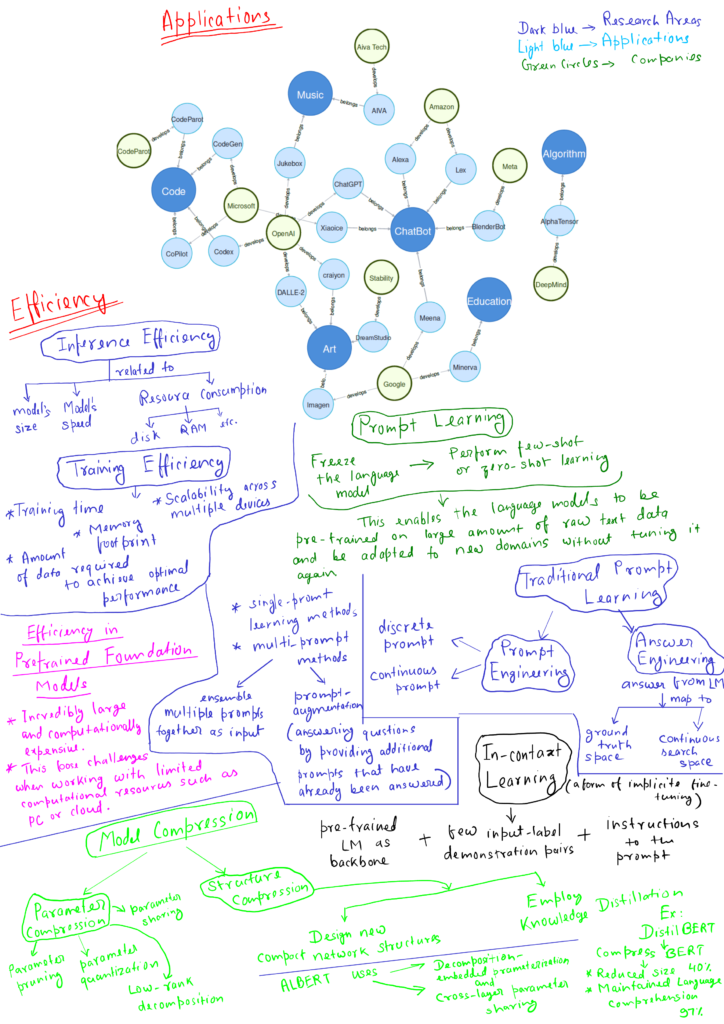 Applications
Dark blue → Research Areas
Light blue → Applications
Green Circles → Companies
Aiva Tech
Music
AIVA
Amazon
CodeParot
CodeParot
CodeGen
Jukebox
Alexa
Lex
Meta
Algorithm
Code
ChatGPT
Microsoft
OpenAI
Xiaoice
ChatBot
BlenderBot
AlphaTensor
CoPilot
Codex
DALLE-2
craiyon
Stability
DeepMind
Education
Meena
Art
DreamStudio
Minerva
Google
Imagen
develops
belongs
Efficiency
Inference Efficiency
related to
model's
size
Model's
speed
Resource Consumption
disk
RAM
etc.
Training Efficiency
* Training time
* Scalability across
multiple devices
* Memory
footprint
* Amount
of data required
to achieve optimal
performance
Prompt Learning
Freeze
the language
model
→ Perform few-shot
or zero-shot learning
This enables the language models to be
pre-trained on large amount of raw text data
and be adopted to new domains without tuning it
again
Efficiency in
Pretrained Foundation
Models
* Incredibly large
and computationally
expensive.
* This pose challenges
when working with limited
computational resources such as
PC or cloud.
* single-promt
learning methods
* multi-prompt
methods
ensemble
multiple prompts
together as input
prompt-
augmentation
(answering questions
by providing additional
prompts that have
already been answered)
Traditional Prompt
Learning
discrete
prompt
continuous
prompt
Prompt
Engineering
Answer
Engineering
answer from LM
map to
ground
truth
space
continuous
search
space
In-context
Learning
(a form of implicite fine-
tuning)
pre-trained
LM as
backbone
+
few input-label
demonstration pairs
+
instructions
to the
prompt
Model Compression
Parameter
Compression
parameter
sharing
Parameter
pruning
parameter
quantization
Low-rank
decomposition
Structure
Compression
Design new
compact network structures
Employ
Knowledge Distillation
Ex:
DistilBERT
Compress BERT
* Reduced size 40%
* Maintained Language
comprehension
97%
ALBERT uses
Decomposition-
embedded prameterization
and
Cross-layer parameter
sharing